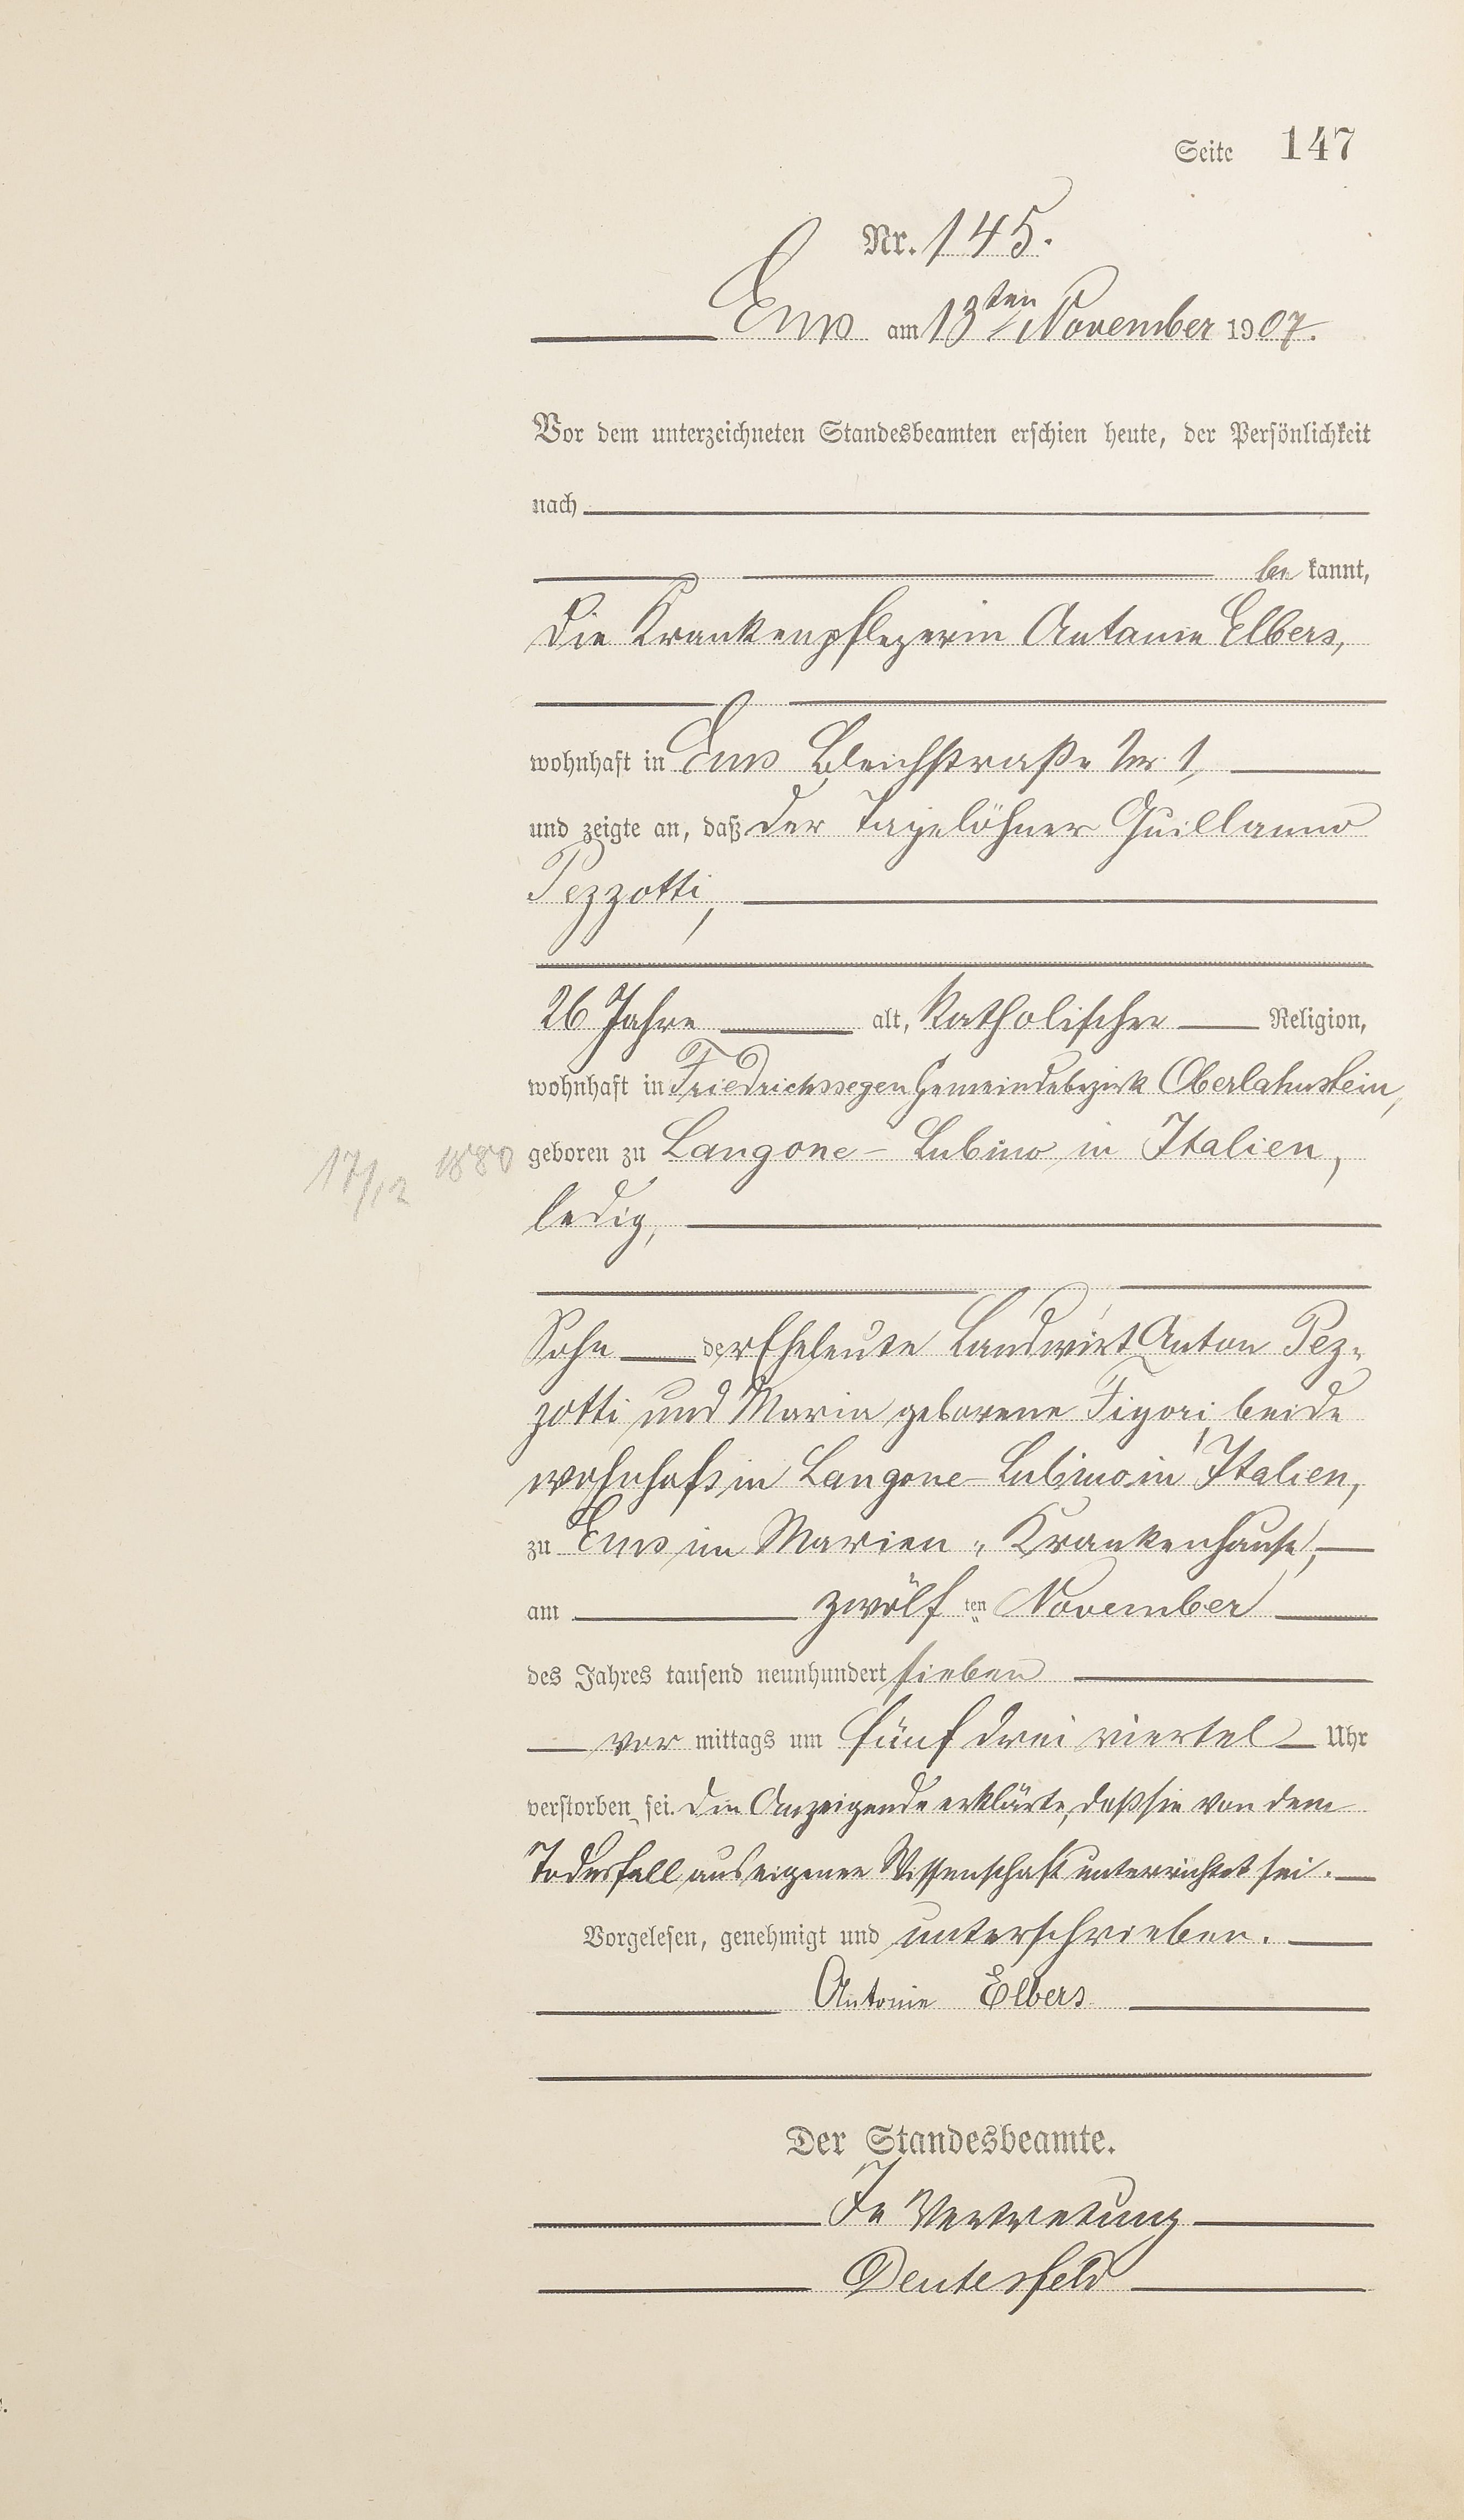 Seite 147
Nr. 145.
Ems am 13ten November 1907.
Vor dem unterzeichneten Standesbeamten erschien heute, der Persönlichkeit
nach
be kannt,
die Krankenpflegerin Antonie Elbers,
wohnhaft in Ems Bleichstraße Nr 1,
und zeigte an, daß der Tagelöhner Guillanno
Pezzotti,
26 Jahre alt, katholischer Religion,
wohnhaft in Friedrichssegen Gemeindebezirk Oberlahnstein,
17/12 1880 geboren zu Langone-Lubino in Italien,
ledig,
Sohn der Eheleute Landwirt Anton Pez-
zotti und Maria geborene Figori, beide
wohnhaft in Langone-Lubino in Italien,
zu Ems im Marien-Krankenhause,
am zwölf ten November
des Jahres tausend neunhundert sieben
vor mittags um fünf drei viertel Uhr
verstorben sei. Die Anzeigende erklärte, daß sie von dem
Todesfall aus eigener Wissenschaft unterrichtet sei.
Vorgelesen, genehmigt und unterschrieben.
Antonie Elbers
Der Standesbeamte.
In Vertretung
Deutesfeld